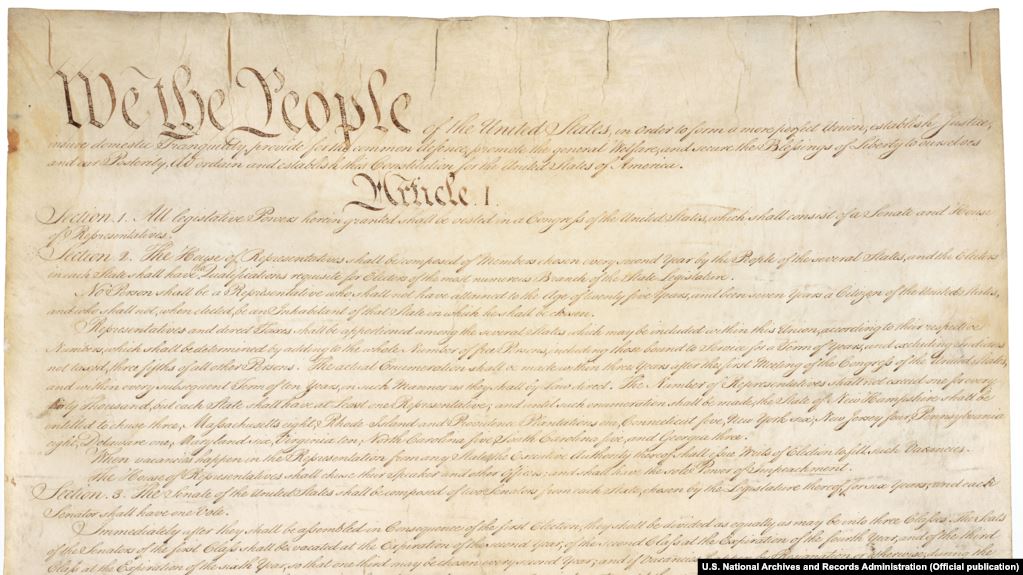 We the People of the United States, in Order to form a more perfect Union, establish Justice,
insure domestic Tranquility, provide for the common defence, promote the general Welfare, and secure the Blessings of Liberty to ourselves
and our Posterity, do ordain and establish this Constitution for the United States of America.
Article. I.
Section. 1. All legislative Powers herein granted shall be vested in a Congress of the United States, which shall consist of a Senate and House
of Representatives.
Section. 2. The House of Representatives shall be composed of Members chosen every second Year by the People of the several States, and the Electors
in each State shall have the Qualifications requisite for Electors of the most numerous Branch of the State Legislature.
No Person shall be a Representative who shall not have attained to the Age of twenty five Years, and been seven Years a Citizen of the United States,
and who shall not, when elected, be an Inhabitant of that State in which he shall be chosen.
Representatives and direct Taxes shall be apportioned among the several States which may be included within this Union, according to their respective
Numbers, which shall be determined by adding to the whole Number of free Persons, including those bound to Service for a Term of Years, and excluding Indians
not taxed, three fifths of all other Persons. The actual Enumeration shall be made within three Years after the first Meeting of the Congress of the United States,
and within every subsequent Term of ten Years, in such Manner as they shall by Law direct. The Number of Representatives shall not exceed one for every
thirty Thousand, but each State shall have at Least one Representative; and until such enumeration shall be made, the State of New Hampshire shall be
entitled to chuse three, Massachusetts eight, Rhode Island and Providence Plantations one, Connecticut five, New York six, New Jersey four, Pennsylvania
eight, Delaware one, Maryland six, Virginia ten, North Carolina five, South Carolina five, and Georgia three.
When vacancies happen in the Representation from any State, the Executive Authority thereof shall issue Writs of Election to fill such Vacancies.
The House of Representatives shall chuse their Speaker and other Officers; and shall have the sole Power of Impeachment.
Section. 3. The Senate of the United States shall be composed of two Senators from each State, chosen by the Legislature thereof, for six Years; and each
Senator shall have one Vote.
Immediately after they shall be assembled in Consequence of the first Election, they shall be divided as equally as may be into three Classes. The Seats
of the Senators of the first Class shall be vacated at the Expiration of the second Year, of the second Class at the Expiration of the fourth Year, and of the third
Class at the Expiration of the sixth Year, so that one third may be chosen every second Year; and if Vacancies otherwise, during the
U.S. National Archives and Records Administration (Official publication)